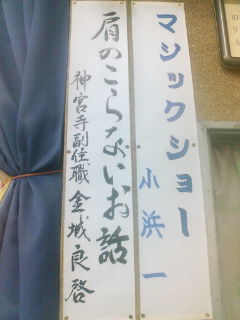 マジックショー
小浜一
肩のこらないお話
神宮寺副住職金城良啓